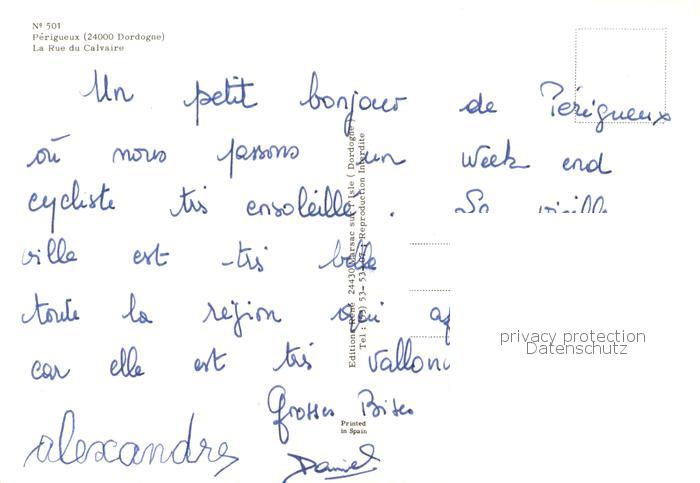 Nº 501
Périgueux (24000 Dordogne)
La Rue du Calvaire
Un petit bonjour de Périgueux
où nous passons un week end
cycliste très ensoleillé. La vieille
ville est très belle
toute la région qui
car elle est très
Grosses Bises
alexandre
Daniel
Editions René 24430 Marsac sur l'Isle (Dordogne)
Reproduction Interdite
Printed
in Spain
privacy protection
Datenschutz